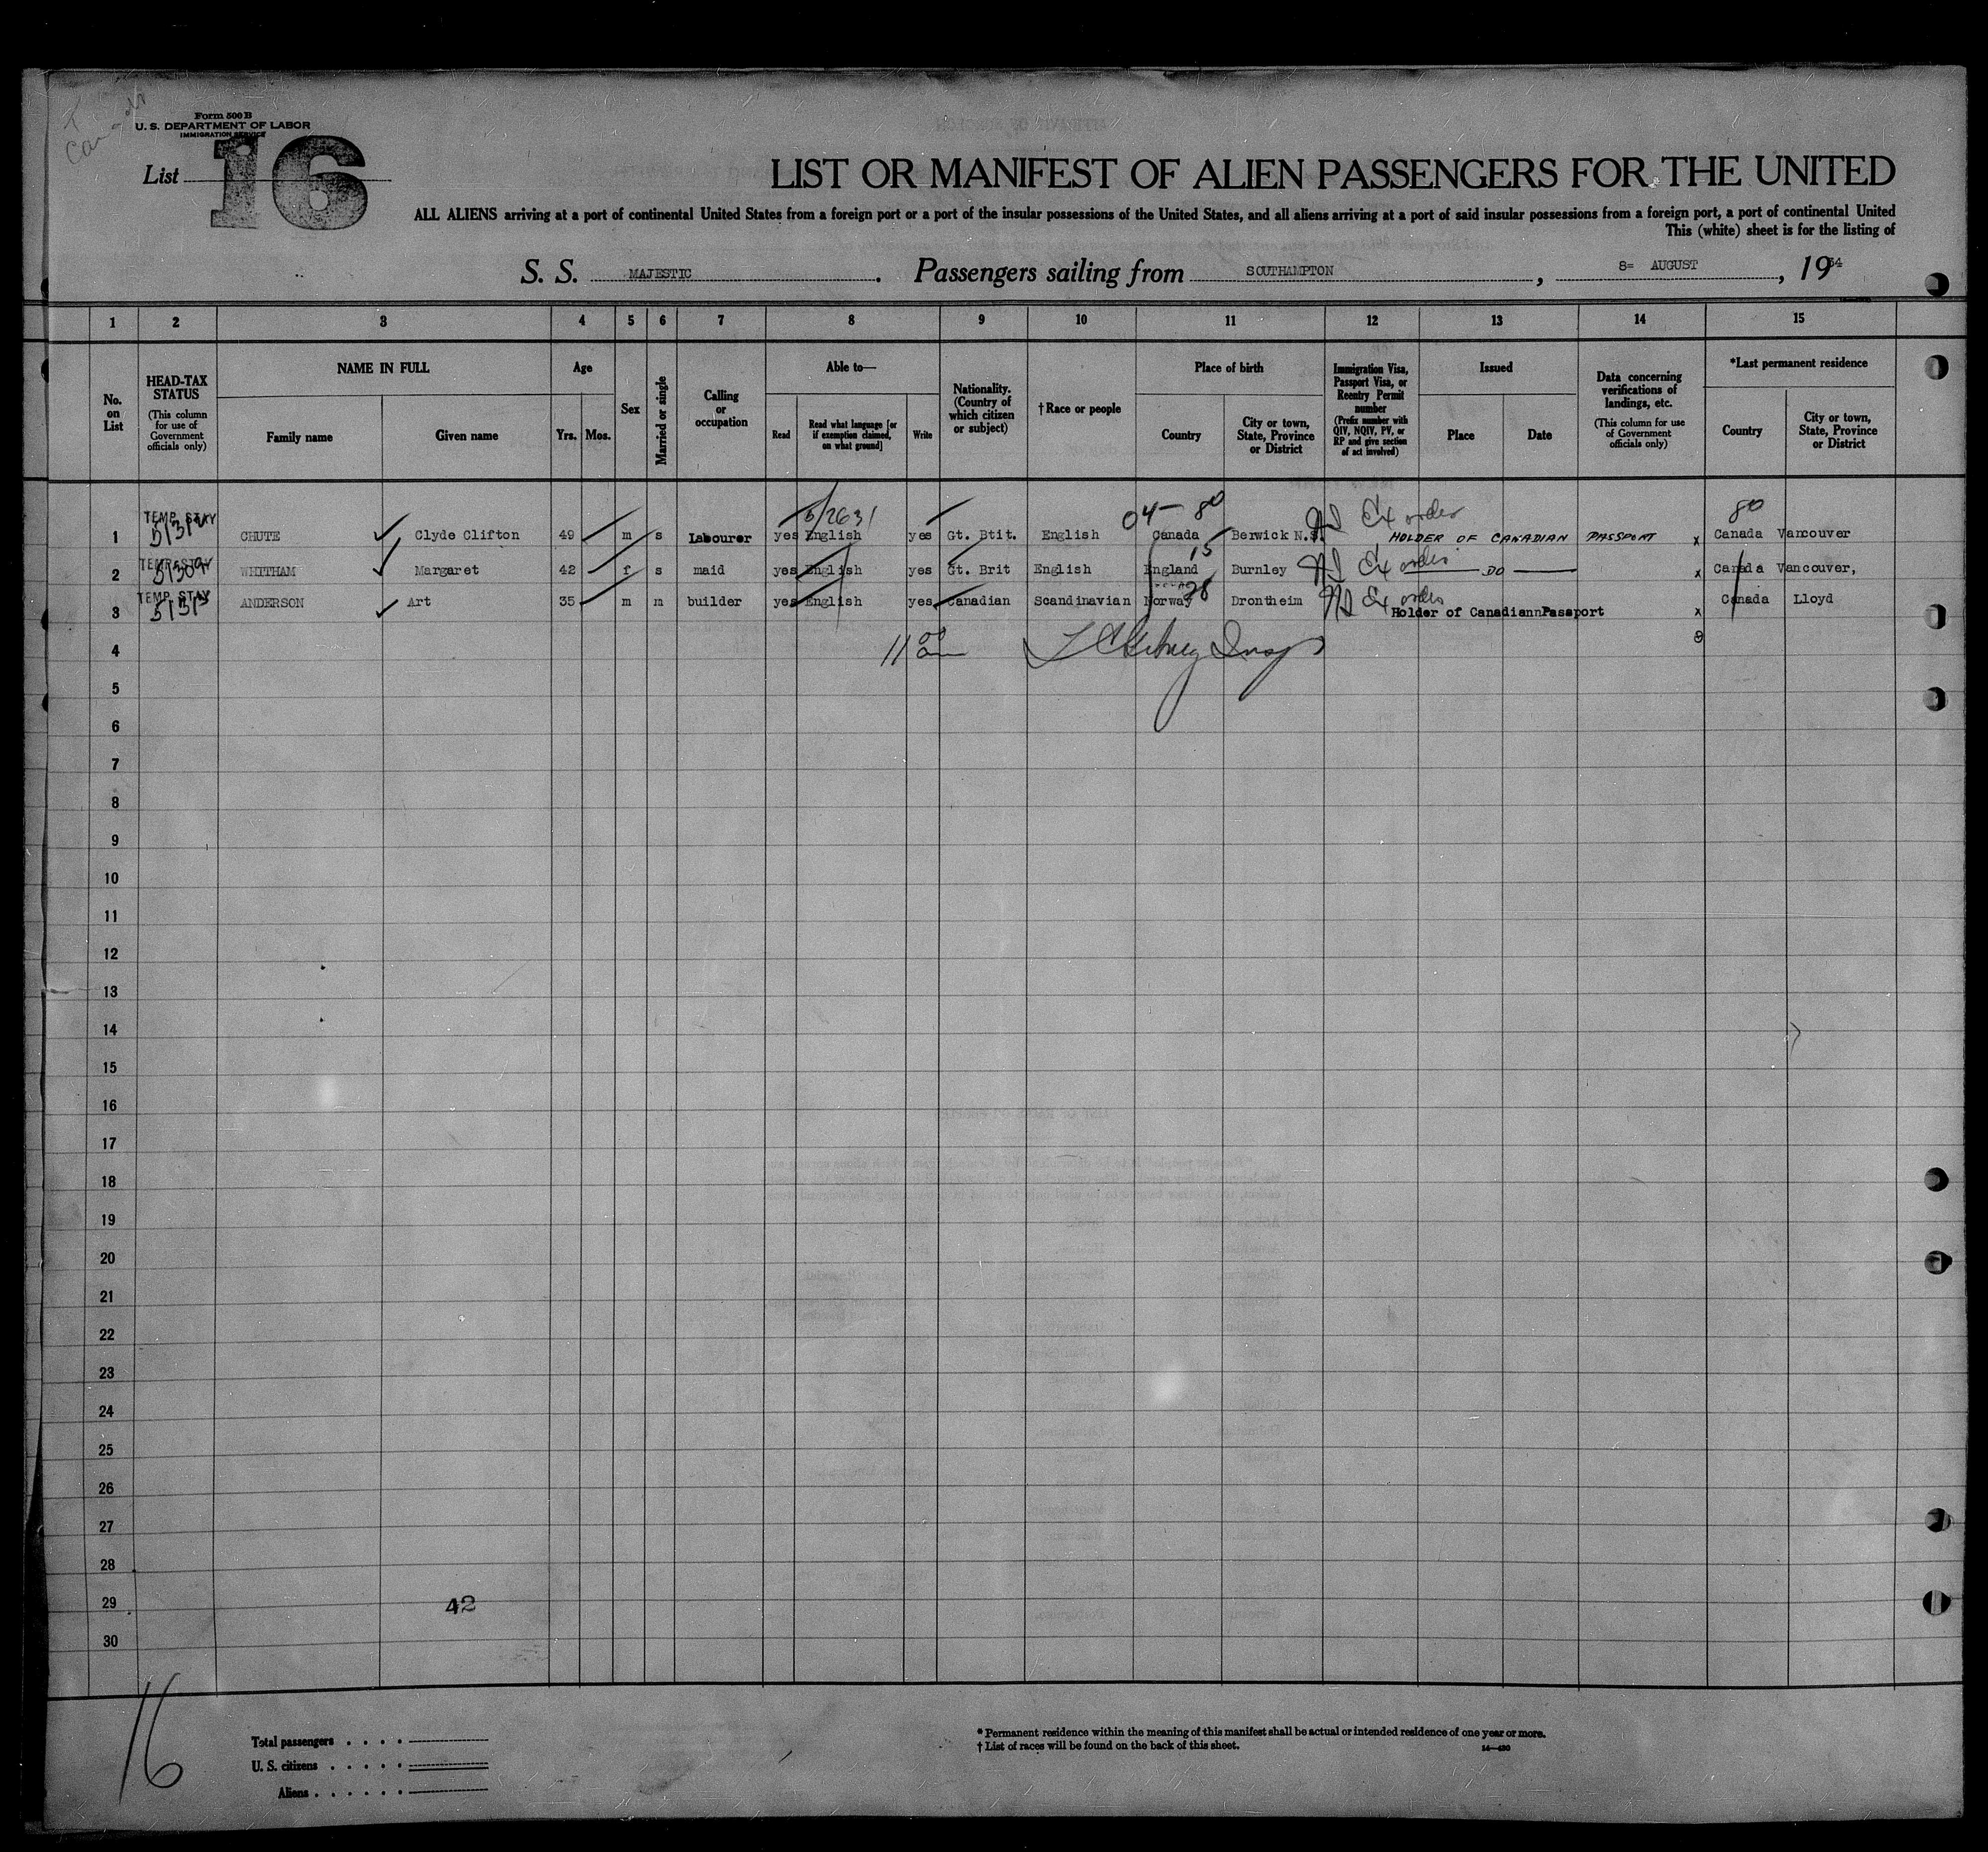 Form 500 B
U. S. DEPARTMENT OF LABOR
IMMIGRATION SERVICE
List 16
LIST OR MANIFEST OF ALIEN PASSENGERS FOR THE UNITED
ALL ALIENS arriving at a port of continental United States from a foreign port or a port of the insular possessions of the United States, and all aliens arriving at a port of said insular possessions from a foreign port, a port of continental United
This (white) sheet is for the listing of
S. S. MAJESTIC. Passengers sailing from SOUTHAMPTON, 8= AUGUST, 1934
1 2 3 4 5 6 7 8 9 10 11 12 13 14 15
No. on List
HEAD-TAX STATUS
(This column for use of Government officials only)
NAME IN FULL
Family name Given name
Age
Yrs. Mos.
Sex
Married or single
Calling or occupation
Able to—
Read
Read what language [or if exemption claimed, on what ground]
Write
Nationality. (Country of which citizen or subject)
† Race or people
Place of birth
Country
City or town, State, Province or District
Immigration Visa, Passport Visa, or Reentry Permit number
(Prefix number with QIV, NQIV, PV, or RP and give section of act involved)
Issued
Place Date
Data concerning verifications of landings, etc.
(This column for use of Government officials only)
*Last permanent residence
Country
City or town, State, Province or District
5/2631 04- 80 Ex order 80
1 TEMP. STAY CHUTE Clyde Clifton 49 m s Labourer yes English yes Gt. Btit. English Canada Berwick N.S. HOLDER OF CANADIAN PASSPORT x Canada Vancouver
15 Ex order
2 TEMP. STAY WHITHAM Margaret 42 f s maid yes English yes Gt. Brit English England Burnley DO x Canada Vancouver,
28 Ex order
3 TEMP. STAY ANDERSON Art 35 m m builder yes English yes Canadian Scandinavian Norway Drontheim Holder of CanadiannPassport x Canada Lloyd
4 11 00 am
5
6
7
8
9
10
11
12
13
14
15
16
17
18
19
20
21
22
23
24
25
26
27
28
29 42
30
16
Total passengers . . . .
U. S. citizens . . . . .
Aliens . . . . . .
* Permanent residence within the meaning of this manifest shall be actual or intended residence of one year or more.
† List of races will be found on the back of this sheet.
14—430